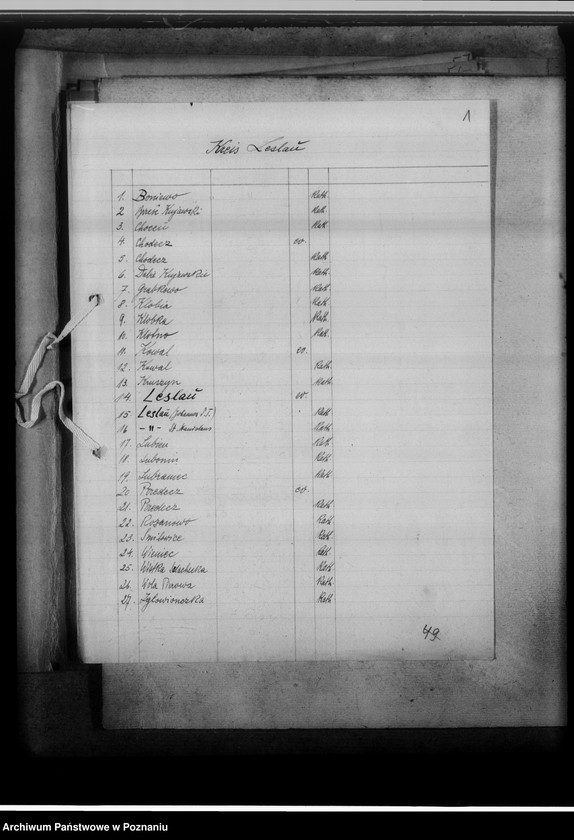 1
Kreis Leslau
1. Boniewo Kath.
2 Brześć Kujawski Kath.
3. Choceń Kath.
4. Chodecz ev.
5. Chodecz Kath.
6. Kujawskie Kath.
7. Grabkowo Kath.
8. Kłobia Kath.
9. Kłobka Kath.
10. Kłotno Kath.
11. Kowal ev.
12. Kowal Kath.
13. Kruszyn Kath.
14 Leslau ev.
15. Leslau (Johannes d.T.) Kath.
16 -"- St. Stanislaus Kath.
17. Lubień Kath.
18. Lubomin Kath.
19. Lubraniec Kath.
20 Przedecz ev.
21. Przedecz Kath.
22. Kath.
23. Śmiłowice Kath.
24. Wieniec Kath.
25. Wistka Kath.
26. Wola Kath.
27. Zgłowiączka Kath.
49
Archiwum Państwowe w Poznaniu